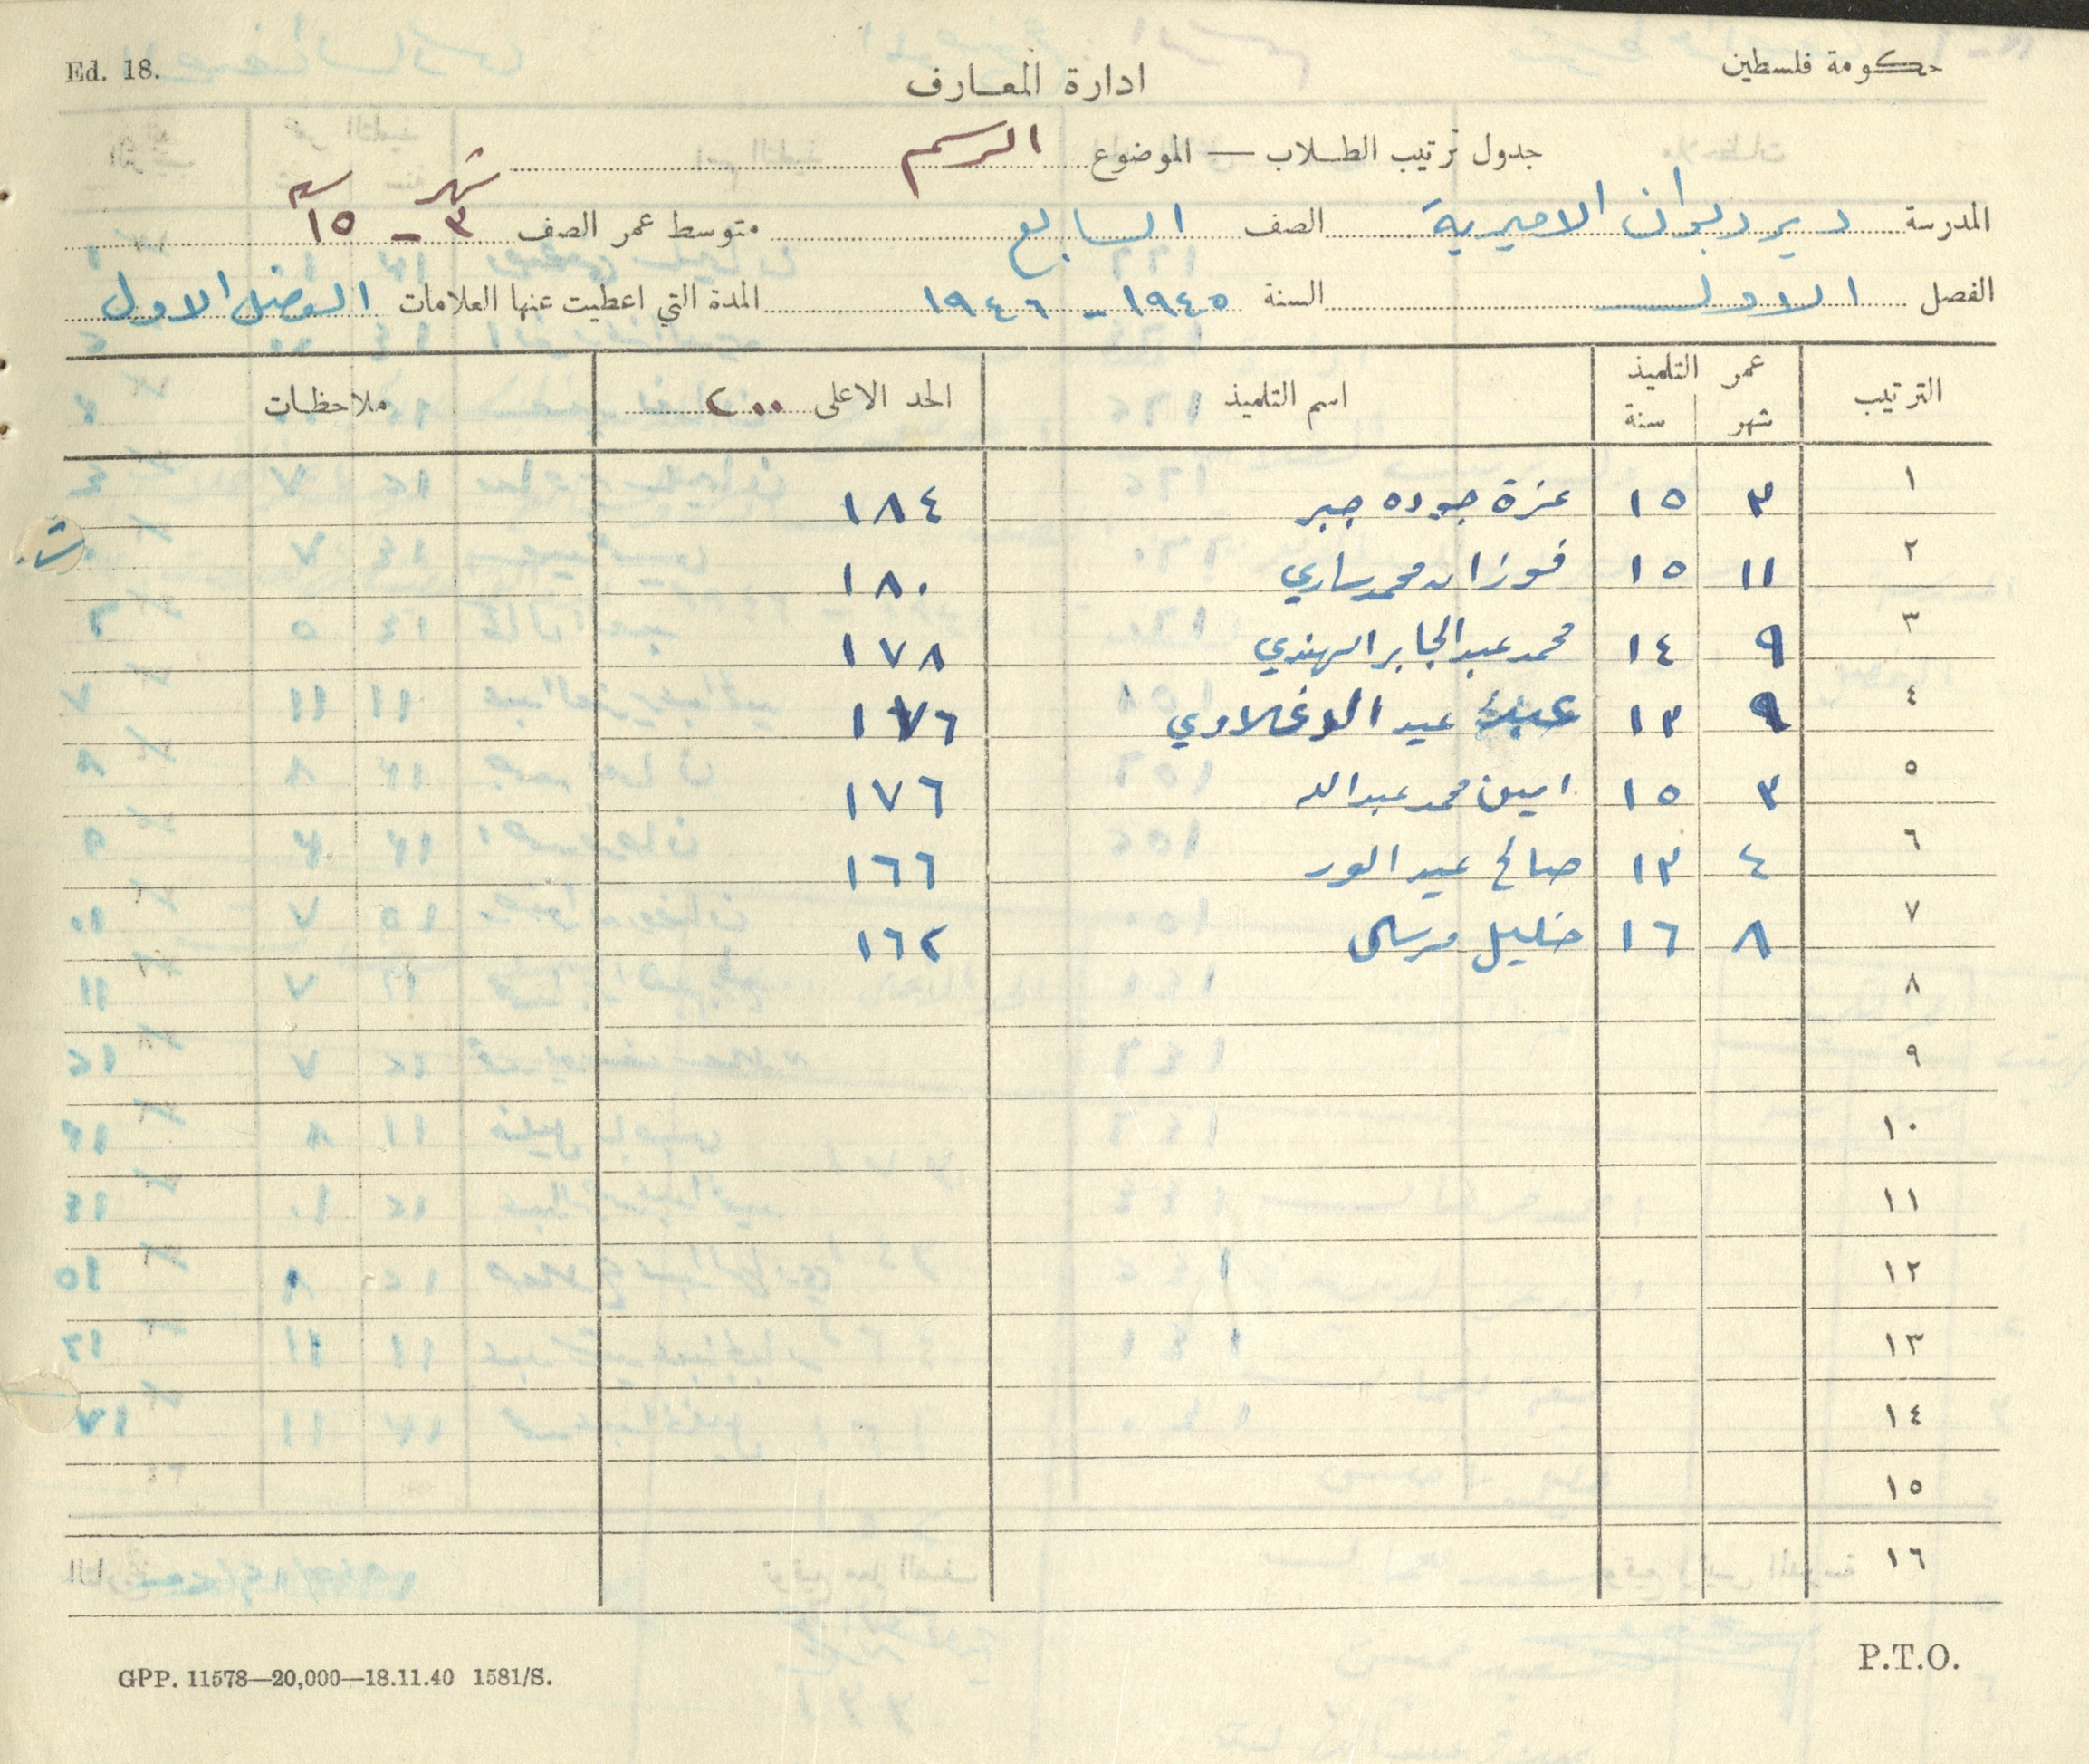 Ed. 18.
حكومة فلسطين
ادارة المعارف
جدول ترتيب الطلاب — الموضوع الرسم
المدرسة دير ديوان الاميرية الصف السابع متوسط عمر الصف شهر ٣ - سنة ١٥
الفصل الاول السنة ١٩٤٥ - ١٩٤٦ المدة التي اعطيت عنها العلامات الفصل الاول
الترتيب عمر التلميذ شهر سنة اسم التلميذ الحد الاعلى ٢٠٠ ملاحظات
١ ٣ ١٥ عزة جوده جبر ١٨٤
٢ ١١ ١٥ فوزان محمد ساري ١٨٠
٣ ٩ ١٤ محمد عبد الجابر الهندي ١٧٨
٤ ٩ ١٣ عيد ١٧٦
٥ ٣ ١٥ امين محمد عبدالله ١٧٦
٦ ٤ ١٣ صالح عيد ١٦٦
٧ ٨ ١٦ خليل مرسى ١٦٢
٨
٩
١٠
١١
١٢
١٣
١٤
١٥
١٦
P.T.O.
GPP. 11578—20,000—18.11.40 1581/S.